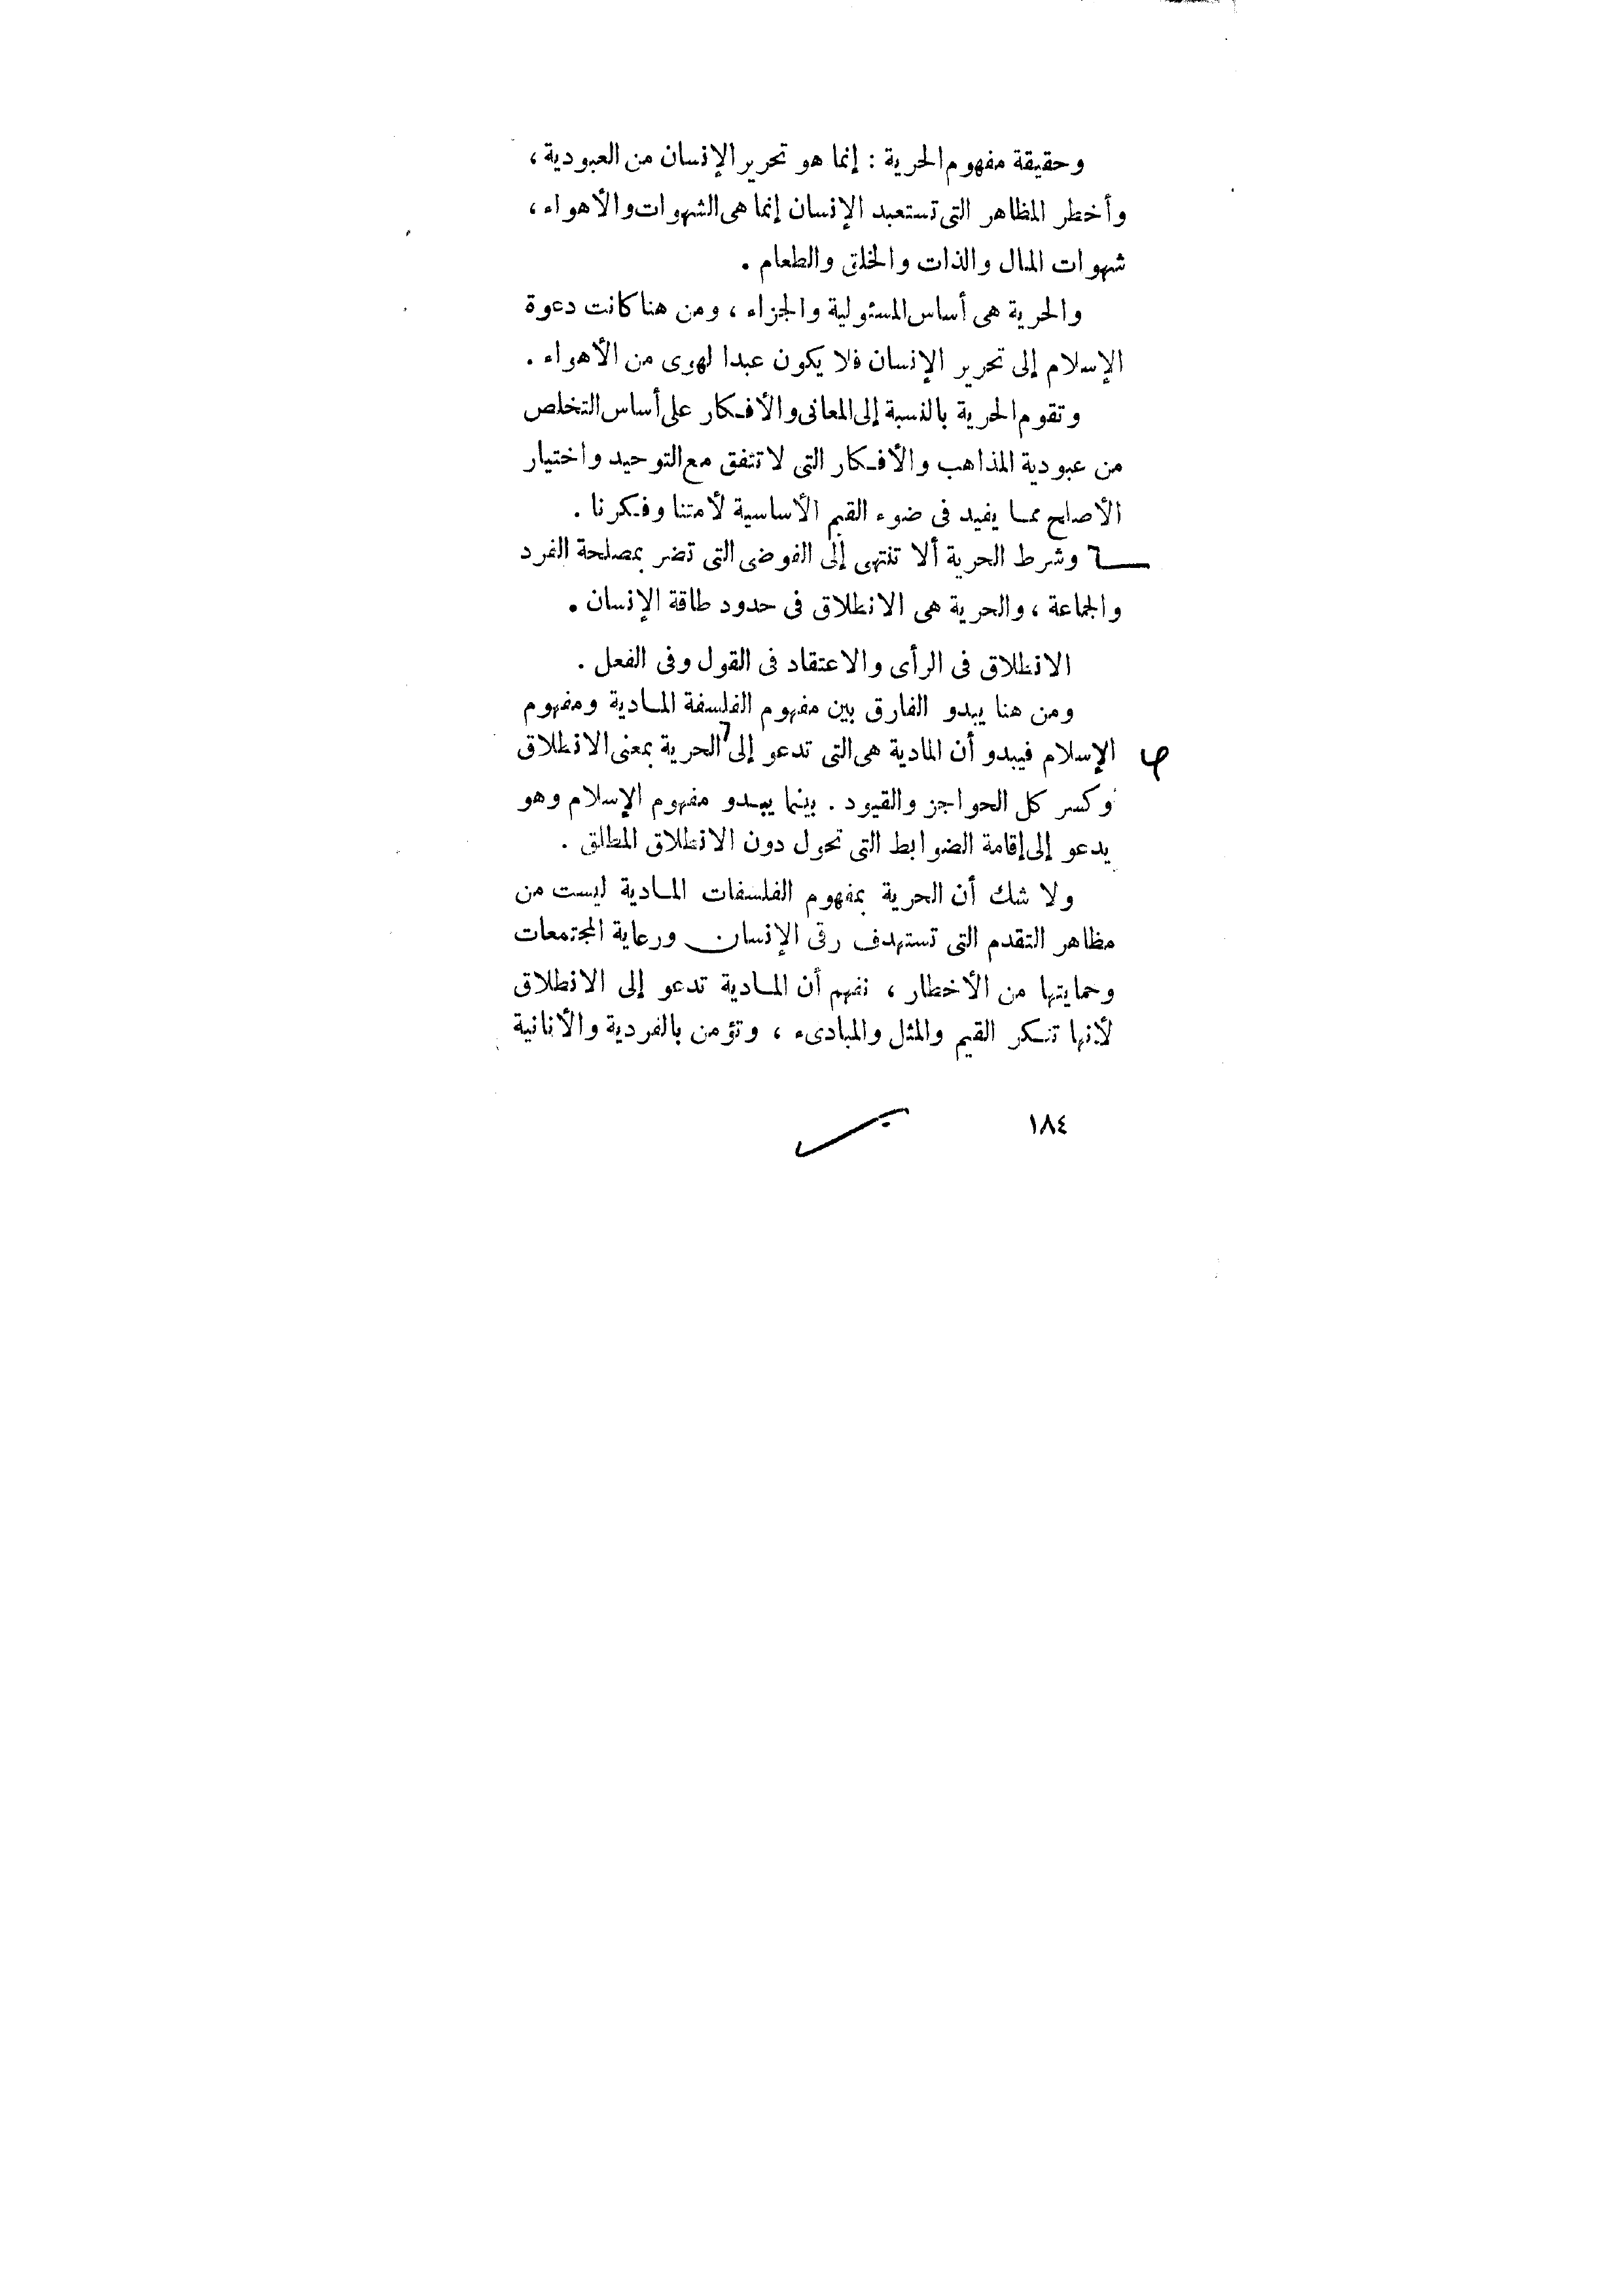 وحقيقة مفهوم الحرية : إنما هو تحرير الإنسان من العبودية ،
وأخطر المظاهر التى تستعبد الإنسان إنما هى الشهوات والأهواء ،
شهوات المال والذات والخلق والطعام .
والحرية هى أساس المسئولية والجزاء ، ومن هنا كانت دعوة
الإسلام إلى تحرير الإنسان فلا يكون عبدا لهوى من الأهواء .
وتقوم الحرية بالنسبة إلى المعانى والأفكار على أساس التخلص
من عبودية المذاهب والأفكار التى لا تتفق مع التوحيد واختيار
الأصلح مما يفيد فى ضوء القيم الأساسية لأمتنا وفكرنا .
وشرط الحرية ألا تنتهى إلى الفوضى التى تضر بمصلحة الفرد
والجماعة ، والحرية هى الانطلاق فى حدود طاقة الإنسان .
الانطلاق فى الرأى والاعتقاد فى القول وفى الفعل .
ومن هنا يبدو الفارق بين مفهوم الفلسفة المادية ومفهوم
الإسلام فيبدو أن المادية هى التى تدعو إلى الحرية بمعنى الانطلاق
وكسر كل الحواجز والقيود . بينما يبدو مفهوم الإسلام وهو
يدعو إلى إقامة الضوابط التى تحول دون الانطلاق المطلق .
ولا شك أن الحرية بمفهوم الفلسفات المادية ليست من
مظاهر التقدم التى تستهدف رقى الإنسان ورعاية المجتمعات
وحمايتها من الأخطار ، نفهم أن المادية تدعو إلى الانطلاق
لأنها تنكر القيم والمثل والمبادىء ، وتؤمن بالفردية والأنانية
١٨٤